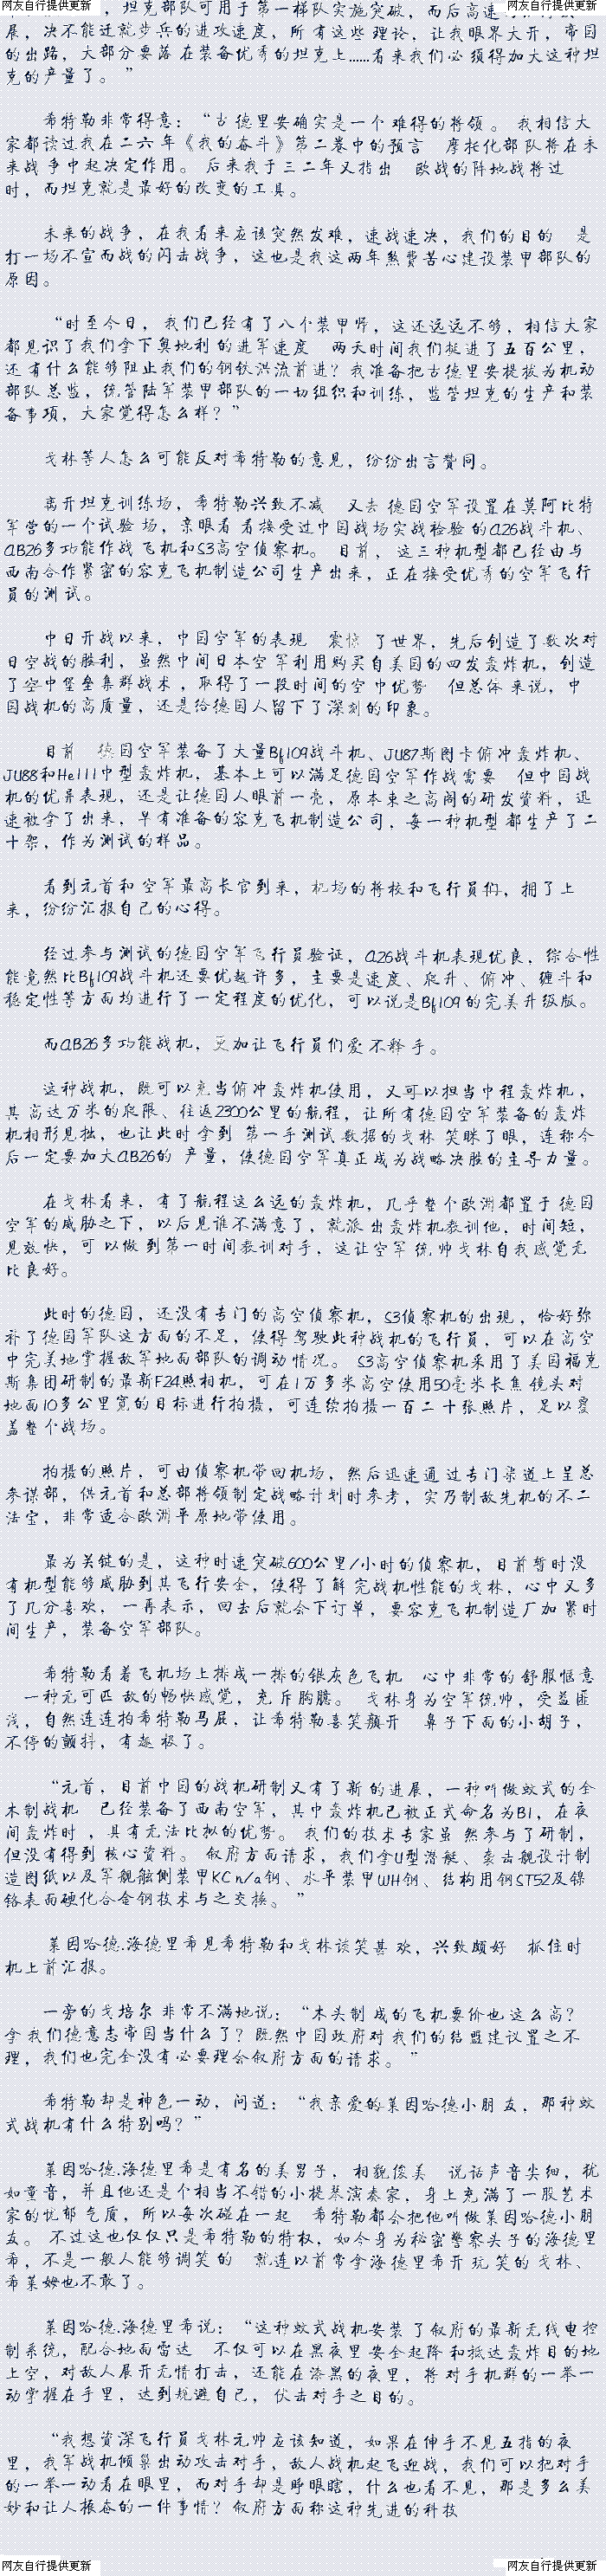 网友自行提供更新 网友自行提供更新
，坦克部队可用于第一梯队实施突破，而后高速
展，决不能迁就步兵的进攻速度，所有这些理论，让我眼界大开，帝国
的出路，大部分要落在装备优秀的坦克上……看来我们必须得加大这种坦
克的产量了。”
希特勒非常得意：“古德里安确实是一个难得的将领。我相信大
家都读过我在二六年《我的奋斗》第二卷中的预言 摩托化部队将在未
来战争中起决定作用。后来我于三二年又指出 欧战的阵地战将过
时，而坦克就是最好的改变的工具。
未来的战争，在我看来应该突然发难，速战速决，我们的目的 是
打一场不宣而战的闪击战争，这也是我这两年煞费苦心建设装甲部队的
原因。
“时至今日，我们已经有了八个装甲师，这还远远不够，相信大家
都见识了我们拿下奥地利的进军速度 两天时间我们挺进了五百公里，
还有什么能够阻止我们的钢铁洪流前进？我准备把古德里安提拔为机动
部队总监，统管陆军装甲部队的一切组织和训练，监管坦克的生产和装
备事项，大家觉得怎么样？”
戈林等人怎么可能反对希特勒的意见，纷纷出言赞同。
离开坦克训练场，希特勒兴致不减 又去德国空军设置在莫阿比特
军营的一个试验场，亲眼看看接受过中国战场实战检验的a26战斗机、
aB26多功能作战飞机和S3高空侦察机。目前，这三种机型都已经由与
西南合作紧密的容克飞机制造公司生产出来，正在接受优秀的空军飞行
员的测试。
中日开战以来，中国空军的表现 震惊 了世界，先后创造了数次对
日空战的胜利，虽然中间日本空军利用购买自美国的四发轰炸机，创造
了空中堡垒集群战术，取得了一段时间的空中优势 但总体来说，中
国战机的高质量，还是给德国人留下了深刻的印象。
目前 德国空军装备了大量Bf109战斗机、JU87斯图卡俯冲轰炸机、
JU88和He111中型轰炸机，基本上可以满足德国空军作战需要 但中国战
机的优异表现，还是让德国人眼前一亮，原本束之高阁的研发资料，迅
速被拿了出来，早有准备的容克飞机制造公司，每一种机型都生产了二
十架，作为测试的样品。
看到元首和空军最高长官到来，机场的将校和飞行员们，拥了上
来，纷纷汇报自己的心得。
经过参与测试的德国空军飞行员验证，a26战斗机表现优良，综合性
能竟然比Bf109战斗机还要优越许多，主要是速度、爬升、俯冲、缠斗和
稳定性等方面均进行了一定程度的优化，可以说是Bf109的完美升级版。
而aB26多功能战机，更加让飞行员们爱不释手。
这种战机，既可以充当俯冲轰炸机使用，又可以担当中程轰炸机，
其高达万米的爬限、往返2300公里的航程，让所有德国空军装备的轰炸
机相形见拙，也让此时拿到第一手测试数据的戈林笑眯了眼，连称今
后一定要加大aB26的产量，使德国空军真正成为战略决胜的主导力量。
在戈林看来，有了航程这么远的轰炸机，几乎整个欧洲都置于德国
空军的威胁之下，以后见谁不满意了，就派出轰炸机教训他，时间短，
见效快，可以做到第一时间教训对手，这让空军统帅戈林自我感觉无
比良好。
此时的德国，还没有专门的高空侦察机，S3侦察机的出现，恰好弥
补了德国军队这方面的不足，使得驾驶此种战机的飞行员，可以在高空
中完美地掌握敌军地面部队的调动情况。S3高空侦察机采用了美国福克
斯集团研制的最新F24照相机，可在1万多米高空使用50毫米长焦镜头对
地面10多公里宽的目标进行拍摄，可连续拍摄一百二十张照片，足以覆
盖整个战场。
拍摄的照片，可由侦察机带回机场，然后迅速通过专门渠道上呈总
参谋部，供元首和总部将领制定战略计划时参考，实乃制敌先机的不二
法宝，非常适合欧洲平原地带使用。
最为关键的是，这种时速突破600公里/小时的侦察机，目前暂时没
有机型能够威胁到其飞行安全，使得了解完战机性能的戈林，心中又多
了几分喜欢，一再表示，回去后就会下订单，要容克飞机制造厂加紧时
间生产，装备空军部队。
希特勒看着飞机场上排成一排的银灰色飞机 心中非常的舒服惬意
一种无可匹敌的畅快感觉，充斥胸臆。戈林身为空军统帅，受益匪
浅，自然连连拍希特勒马屁，让希特勒喜笑颜开 鼻子下面的小胡子，
不停的颤抖，有趣极了。
“元首，目前中国的战机研制又有了新的进展，一种叫做蚊式的全
木制战机 已经装备了西南空军，其中轰炸机已被正式命名为B1，在夜
间轰炸时，具有无法比拟的优势。我们的技术专家虽然参与了研制，
但没有得到核心资料。叙府方面请求，我们拿U型潜艇、袭击舰设计制
造图纸以及军舰舷侧装甲KC n/a钢、水平装甲WH钢、结构用钢ST52及镍
铬表面硬化合金钢技术与之交换。”
莱因哈德.海德里希见希特勒和戈林谈笑甚欢，兴致颇好 抓住时
机上前汇报。
一旁的戈培尔非常不满地说：“木头制成的飞机要价也这么高？
拿我们德意志帝国当什么了？既然中国政府对我们的结盟建议置之不
理，我们也完全没有必要理会叙府方面的请求。”
希特勒却是神色一动，问道：“我亲爱的莱因哈德小朋友，那种蚊
式战机有什么特别吗？”
莱因哈德.海德里希是有名的美男子，相貌俊美 说话声音尖细，犹
如童音，并且他还是个相当不错的小提琴演奏家，身上充满了一股艺术
家的忧郁气质，所以每次碰在一起 希特勒都会把他叫做莱因哈德小朋
友。不过这也仅仅只是希特勒的特权，如今身为秘密警察头子的海德里
希，不是一般人能够调笑的 就连以前常拿海德里希开玩笑的戈林、
希莱姆也不敢了。
莱因哈德.海德里希说：“这种蚊式战机安装了叙府的最新无线电控
制系统，配合地面雷达 不仅可以在黑夜里安全起降和抵达轰炸目的地
上空，对敌人展开无情打击，还能在漆黑的夜里，将对手机群的一举一
动掌握在手里，达到规避自己，伏击对手之目的。
“我想资深飞行员戈林元帅应该知道，如果在伸手不见五指的夜
里，我军战机倾巢出动攻击对手，敌人战机起飞迎战，我们可以把对手
的一举一动看在眼里，而对手却是睁眼瞎，什么也看不见，那是多么美
妙和让人振奋的一件事情？叙府方面称这种先进的科技
网友自行提供更新 网友自行提供更新